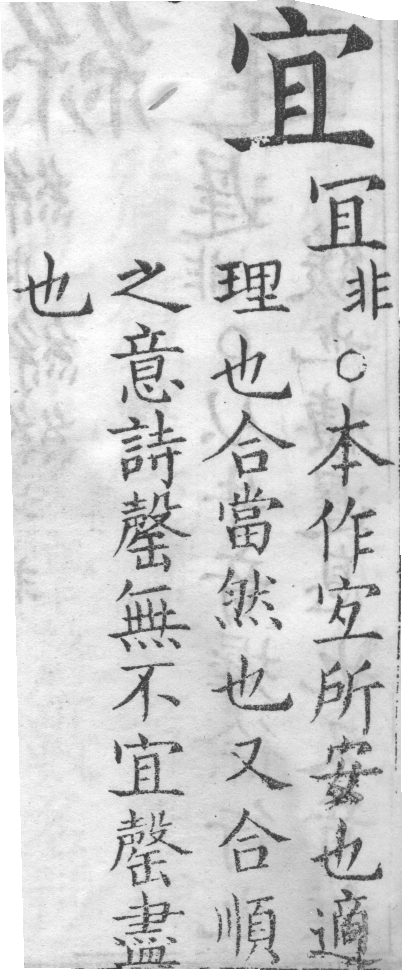 宜
冝非○本作宐所安也適
理也合當然也又合順
之意詩罄無不宜罄盡
也